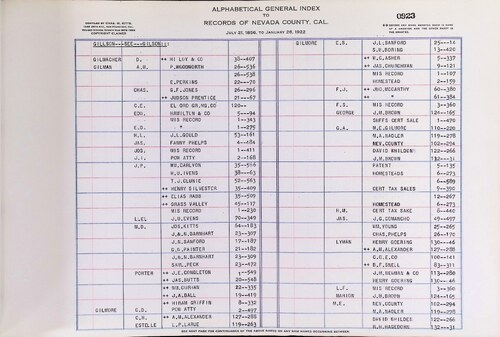 ALPHABETICAL GENERAL INDEX
TO
RECORDS OF NEVADA COUNTY, CAL.
JULY 21, 1856, TO JANUARY 28, 1932
0923
COPYRIGHT CLAIMED
GILLSON---SEE--GILSON
GILMACHER D. ++ 38--407
GILMAN A.H. 26--536
26--538
E.PERKINS 22--70
CHAS. G.F.JONES 26--296
++ JUDSON PRENTICE 21--67
C.E. EL ORO GR.MG.CO 120--
EDW. HAMILTON & CO 5---94
MIS RECORD 1--343
E.D. " 1--275
H.L. J.L.GOULD 53--161
JAS. FANNY PHELPS 4--484
JOS. MIS RECORD 1--411
J.I. POW ATTY 2--168
J.P. WM.CARLYON 35--506
H.Q.IVENS 38--63
T.J.CLUNIE 52--563
++ HENRY SILVESTER 35--409
++ ELIAS HASS 35--509
++ GRASS VALLEY 45--117
MIS RECORD 1--230
LLEL J.H.EVENS 70--349
M.D. JOS.KITTS 64--183
J.&.N.BARNHART 23--307
J.N.SANFORD 17--182
G.K.PAINTER 21--182
J.&.N.BARNHART 23--309
SAML.PECK 23--472
PORTER ++ J.E.CONGLETON 1--549
++ JAS.BUTTS 20--548
++ WM.DURIAN 22--335
++ J.A.BALL 19--419
++ HIRAM GRIFFIN 8--332
GILMORE C.D. POW ATTY 2--497
C.W. ++ A.M.ALEXANDER 127--288
ESTELLE L.P.LARUE 119--263
GILMORE E.S. J.L.SANFORD 25---14
S.H.DORING 13--420
++ W.C.ASHER 5--337
++ JAS.CHURCHMAN 9--121
MIS RECORD 1--107
HOMESTEAD 2--159
F.J. ++ JNO.MCCARTHY 60--380
++ " 61--384
F.S. MIS RECORD 3--360
GEORGE J.M.BROWN 124--165
SUPTS CERT SALE 1--470
G.A. M.E.GILMORE 110--220
M.A.HADLER 119--278
NEV.COUNTY 102--294
DAVID WHILDEN 122--266
J.M.BROWN 132---31
PATENT 5--135
HOMESTEADS 6--273
6--589
CERT TAX SALES 9--390
12--267
HOMESTEAD 6--273
H.M. CERT TAX SALE 8--440
JAS. J.G.COMANCHE 49--407
WM.YOUNG 25--265
CHAS.PHELPS 26--170
LYMAN HENRY GOERING 130--46
++ A.M.ALEXANDER 127--288
G.O.E.CO 100--141
++ B.F.SNELL 83--311
J.M.NEWMAN & CO 113--280
HENRY GOERING 130--46
L.F. MIS RECORD 3--360
MARION J.M.BROWN 124--165
M.E. NEV.COUNTY 102--294
M.A.HADLER 119--278
DAVID WHILDEN 122--266
H.H.HAGEDORN 132---31